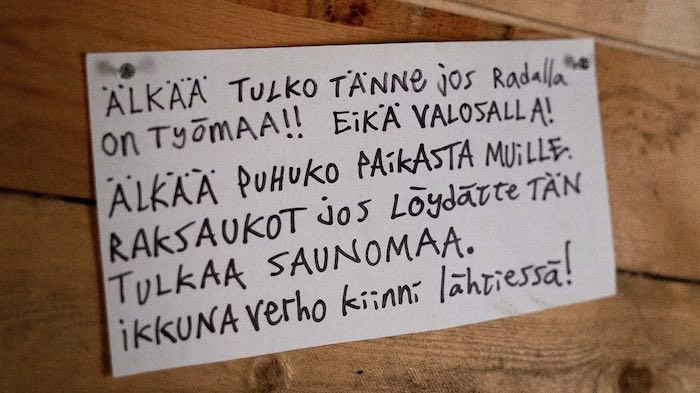 ÄLKÄÄ TULKO TÄNNE jos Radalla
on TYÖMAA!! EIKÄ VALOSALLA!
ÄLKÄÄ PUHUKO PAIKASTA MUILLE.
RAKSAUKOT jos LÖYDÄTTE TÄN
TULKAA SAUNOMAA.
iKKUNAverho kiinni lähtiessä!